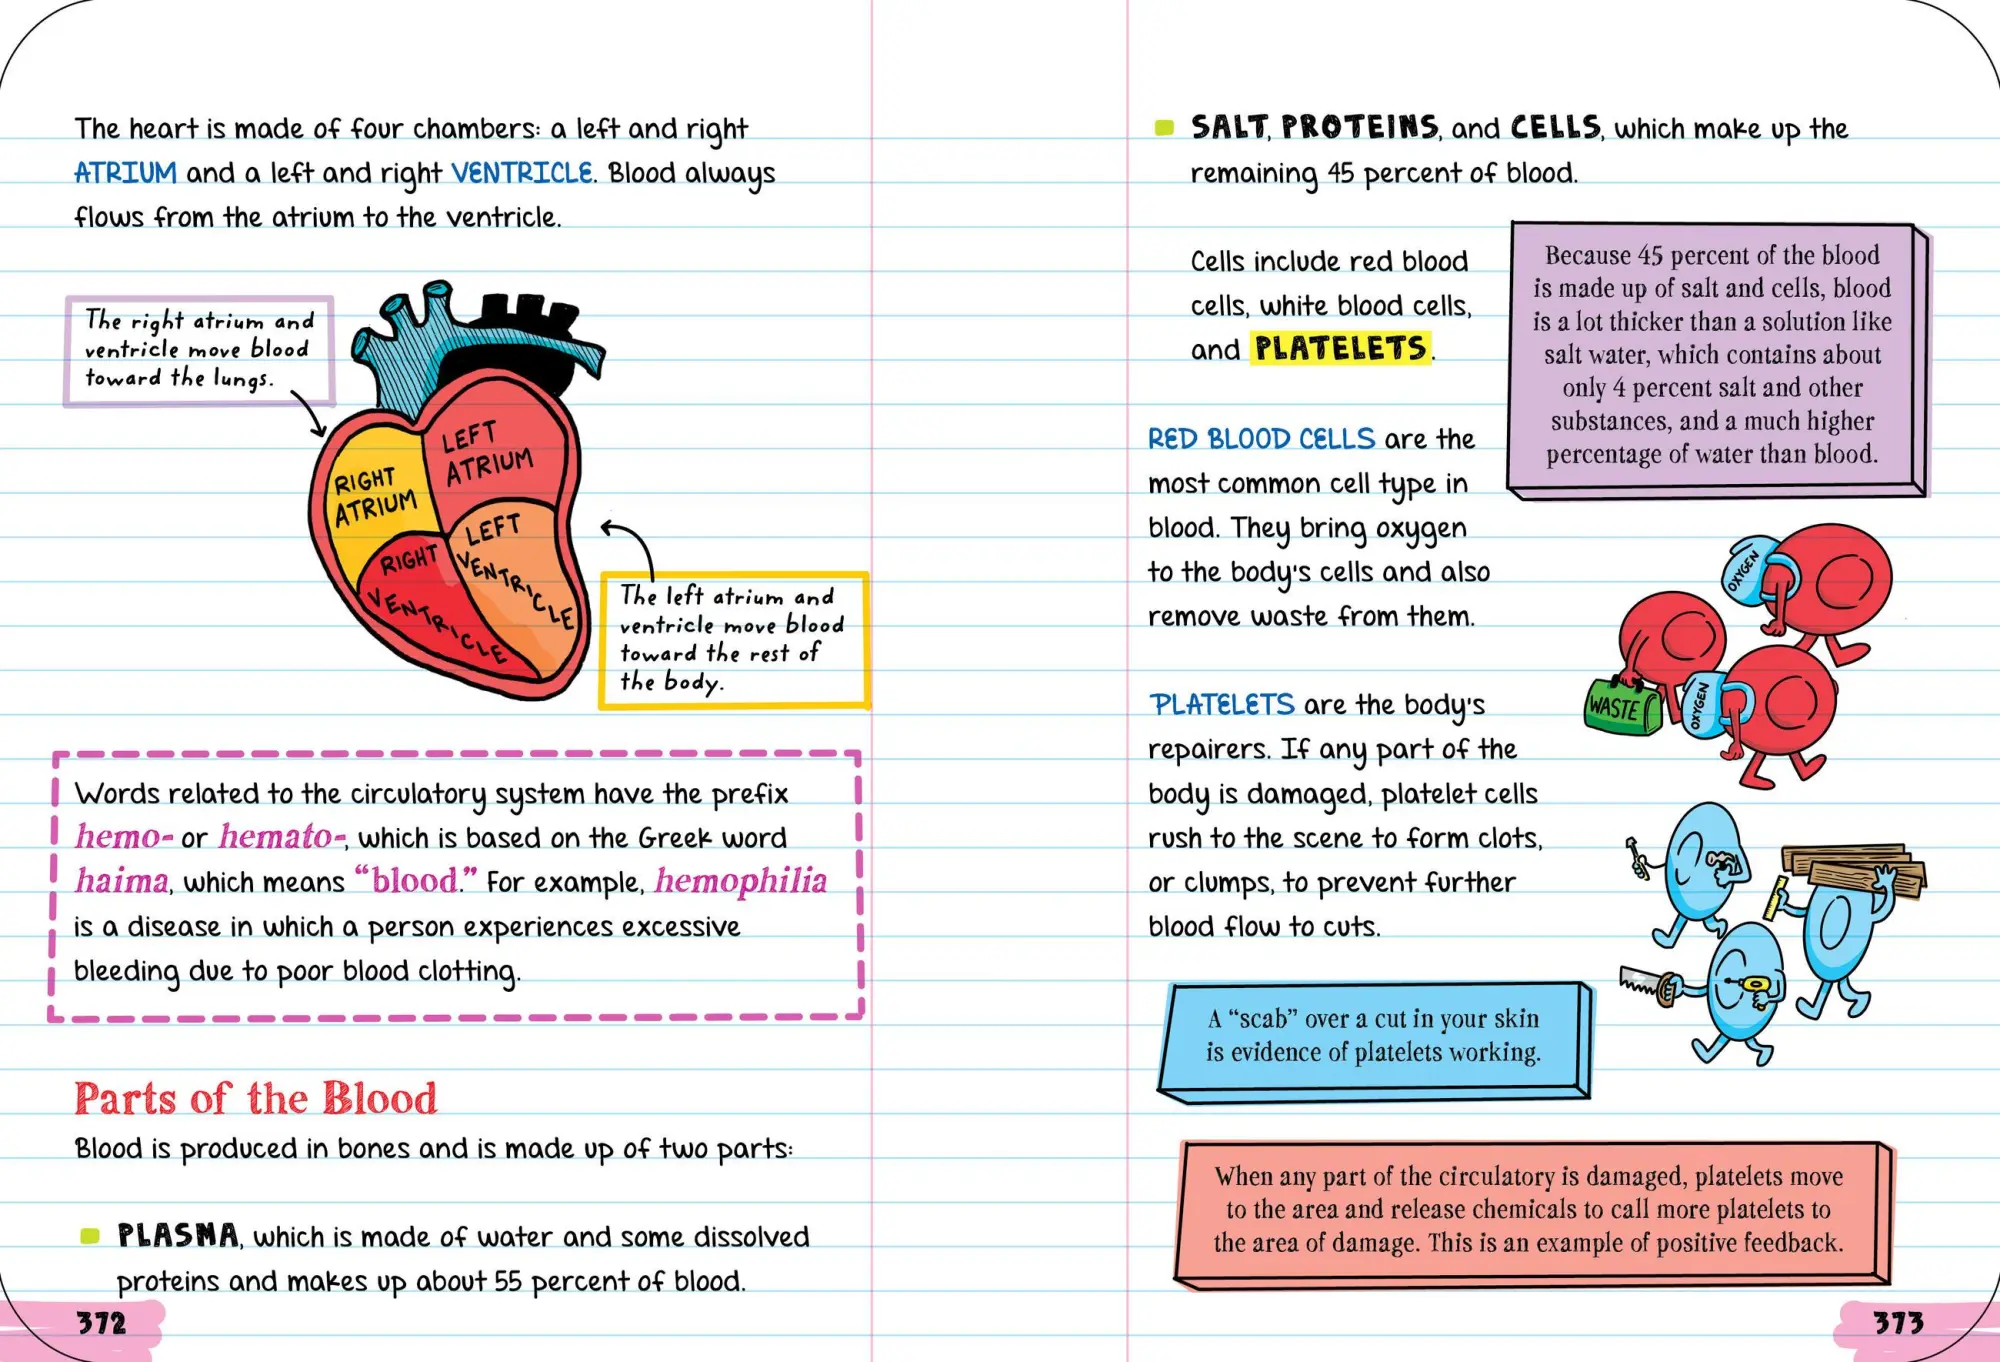 The heart is made of four chambers: a left and right
ATRIUM and a left and right VENTRICLE. Blood always
flows from the atrium to the ventricle.
The right atrium and
ventricle move blood
toward the lungs.
LEFT
ATRIUM
RIGHT
ATRIUM
LEFT
VENTRICLE
RIGHT
VENTRICLE
The left atrium and
ventricle move blood
toward the rest of
the body.
Words related to the circulatory system have the prefix
hemo- or hemato-, which is based on the Greek word
haima, which means “blood.” For example, hemophilia
is a disease in which a person experiences excessive
bleeding due to poor blood clotting.
Parts of the Blood
Blood is produced in bones and is made up of two parts:
PLASMA, which is made of water and some dissolved
proteins and makes up about 55 percent of blood.
372
SALT, PROTEINS, and CELLS, which make up the
remaining 45 percent of blood.
Cells include red blood
cells, white blood cells,
and PLATELETS.
Because 45 percent of the blood
is made up of salt and cells, blood
is a lot thicker than a solution like
salt water, which contains about
only 4 percent salt and other
substances, and a much higher
percentage of water than blood.
RED BLOOD CELLS are the
most common cell type in
blood. They bring oxygen
to the body's cells and also
remove waste from them.
OXYGEN
WASTE
OXYGEN
PLATELETS are the body's
repairers. If any part of the
body is damaged, platelet cells
rush to the scene to form clots,
or clumps, to prevent further
blood flow to cuts.
A “scab” over a cut in your skin
is evidence of platelets working.
When any part of the circulatory is damaged, platelets move
to the area and release chemicals to call more platelets to
the area of damage. This is an example of positive feedback.
373